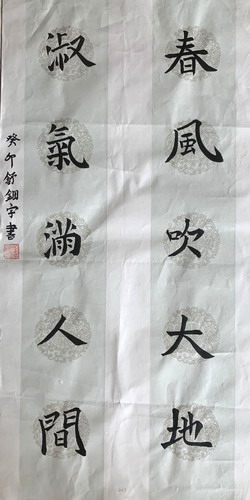 春風吹大地
淑氣滿人間
癸卯舒鈿宇書